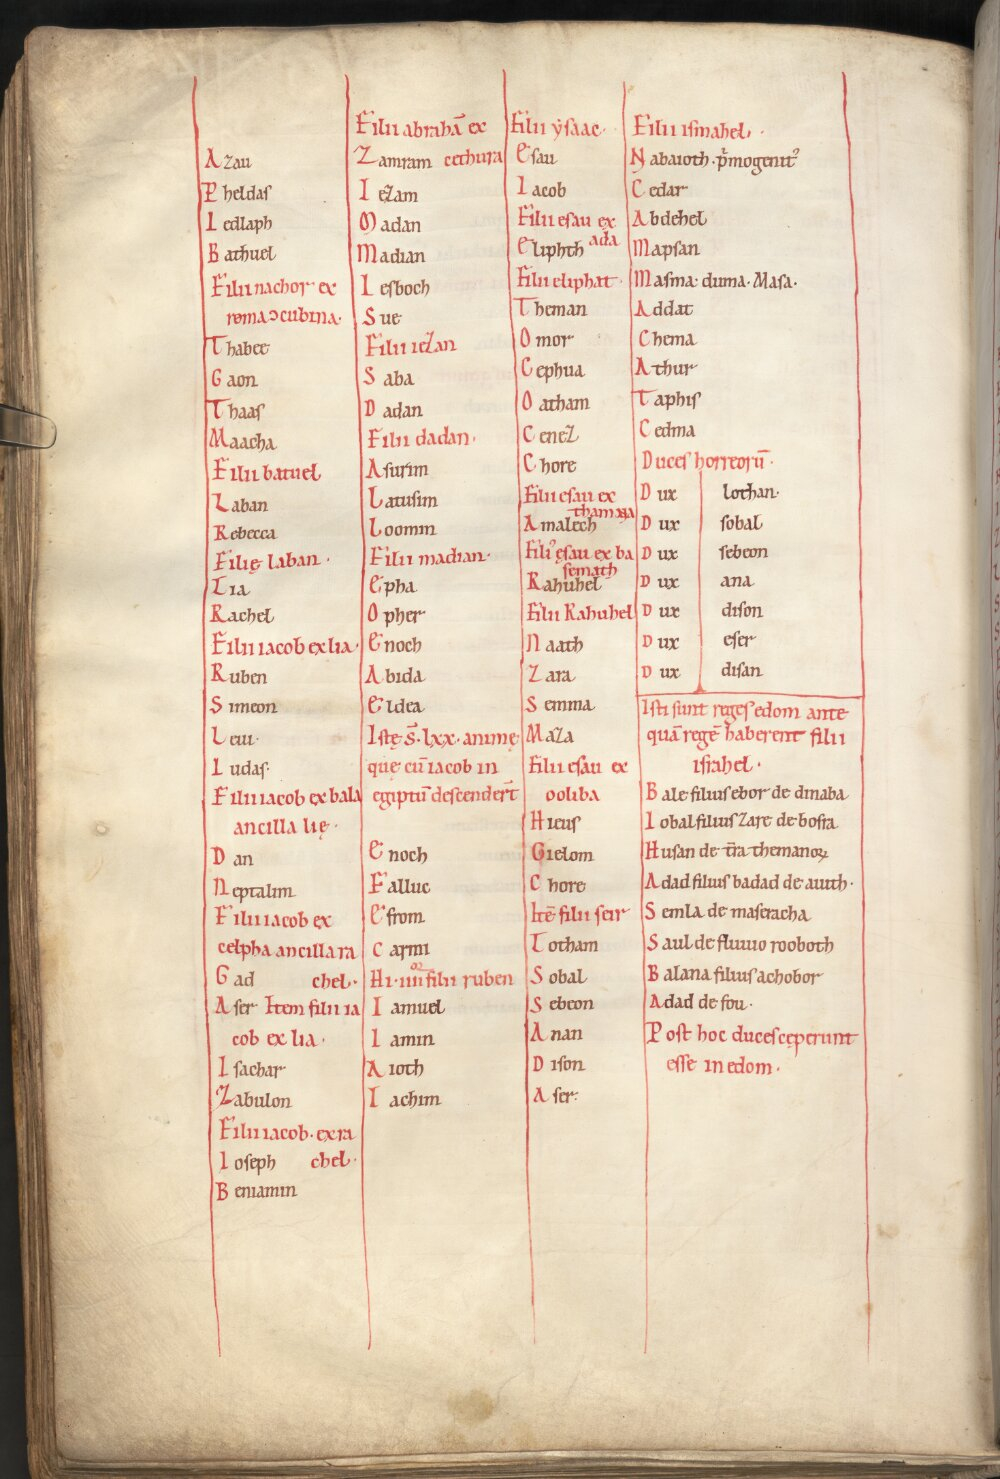 Azau
Pheldas
Iedlaph
Bathuel
Filii nachor ex
roma ↄcubina·
Thabec
Gaon
Thaas
Maacha
Filii batuel
Laban
Rebecca
Filię laban·
Lia
Rachel
Filii iacob ex lia·
Ruben
Simeon
Leui·
Iudas·
Filii iacob ex bala
ancilla lię·
Dan
Neptalim
Filii iacob ex
celpha ancilla ra
Gad chel·
Aser Item filii ia
cob ex lia·
Isachar
Zabulon
Filii iacob· ex ra
Ioseph chel·
Beniamin
Filii abrahā ex
Zamram cethura
Iezam
Madan
Madian
Iesboch
Sue
Filii iezan
Saba
Dadan
Filii dadan·
Asurim
Latusim
Loomin
Filii madian·
Epha
Opher
Enoch
Abida
Eldea
Istę s̄· lxx· animę
quę cū iacob in
egiptū descender̄t
Enoch
Falluc
Efrom
Carmi
Hi· iiii filii ruben
Iamuel
Iamin
Aioth
Iachim
Filii ẏsaac·
Esau
Iacob
Filii esau ex
ada
Eliphth
Filii eliphat·
Theman
Omor
Cephua
Oatham
Cenez
Chore
Filii esau ex
thamna
Amalech
Filiꝰ ęsau ex ba
semath
Rahuhel
Filii Rahuhel
Naath
Zara
Semma
Maza
Filii esau ex
ooliba
Hieus
Gielom
Chore
Itē filii seir
Lotham
Sobal
Sebeon
Anan
Dison
Aser·
Filii ismahel·
Nabaioth· p̄mogenitꝰ
Cedar
Abdehel
Mapsan
Masma· duma· Masa·
Addat
Chema
Athur
Taphis
Cedma
Duces horreorū·
Dux lothan·
Dux sobal
Dux sebeon
Dux ana
Dux dison
Dux eser
Dux disan
Isti sunt reges edom ante
quā regē haberent filii
israhel·
Bale filius ebor de dinaba
Iobal filius Zare de bosra
Husan de t̄ra themanoꝝ
Adad filius badad de auith·
Semla de maseracha
Saul de fluuio rooboth
Balana filius achobor
Adad de fou·
Post hoc duces cęperunt
esse in edom·